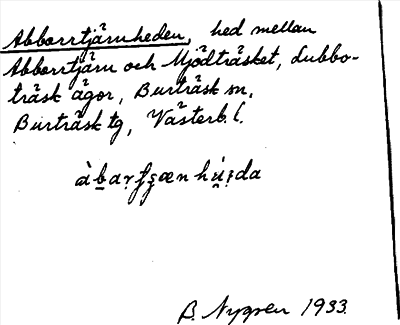 Abborrtjärnheden, hed mellan
Abborrtjärn och Mjödträsket, Lubbo-
träsk ägor, Burträsk sn,
Burträsk tg, Västerb. l.
B. Nygren 1933.